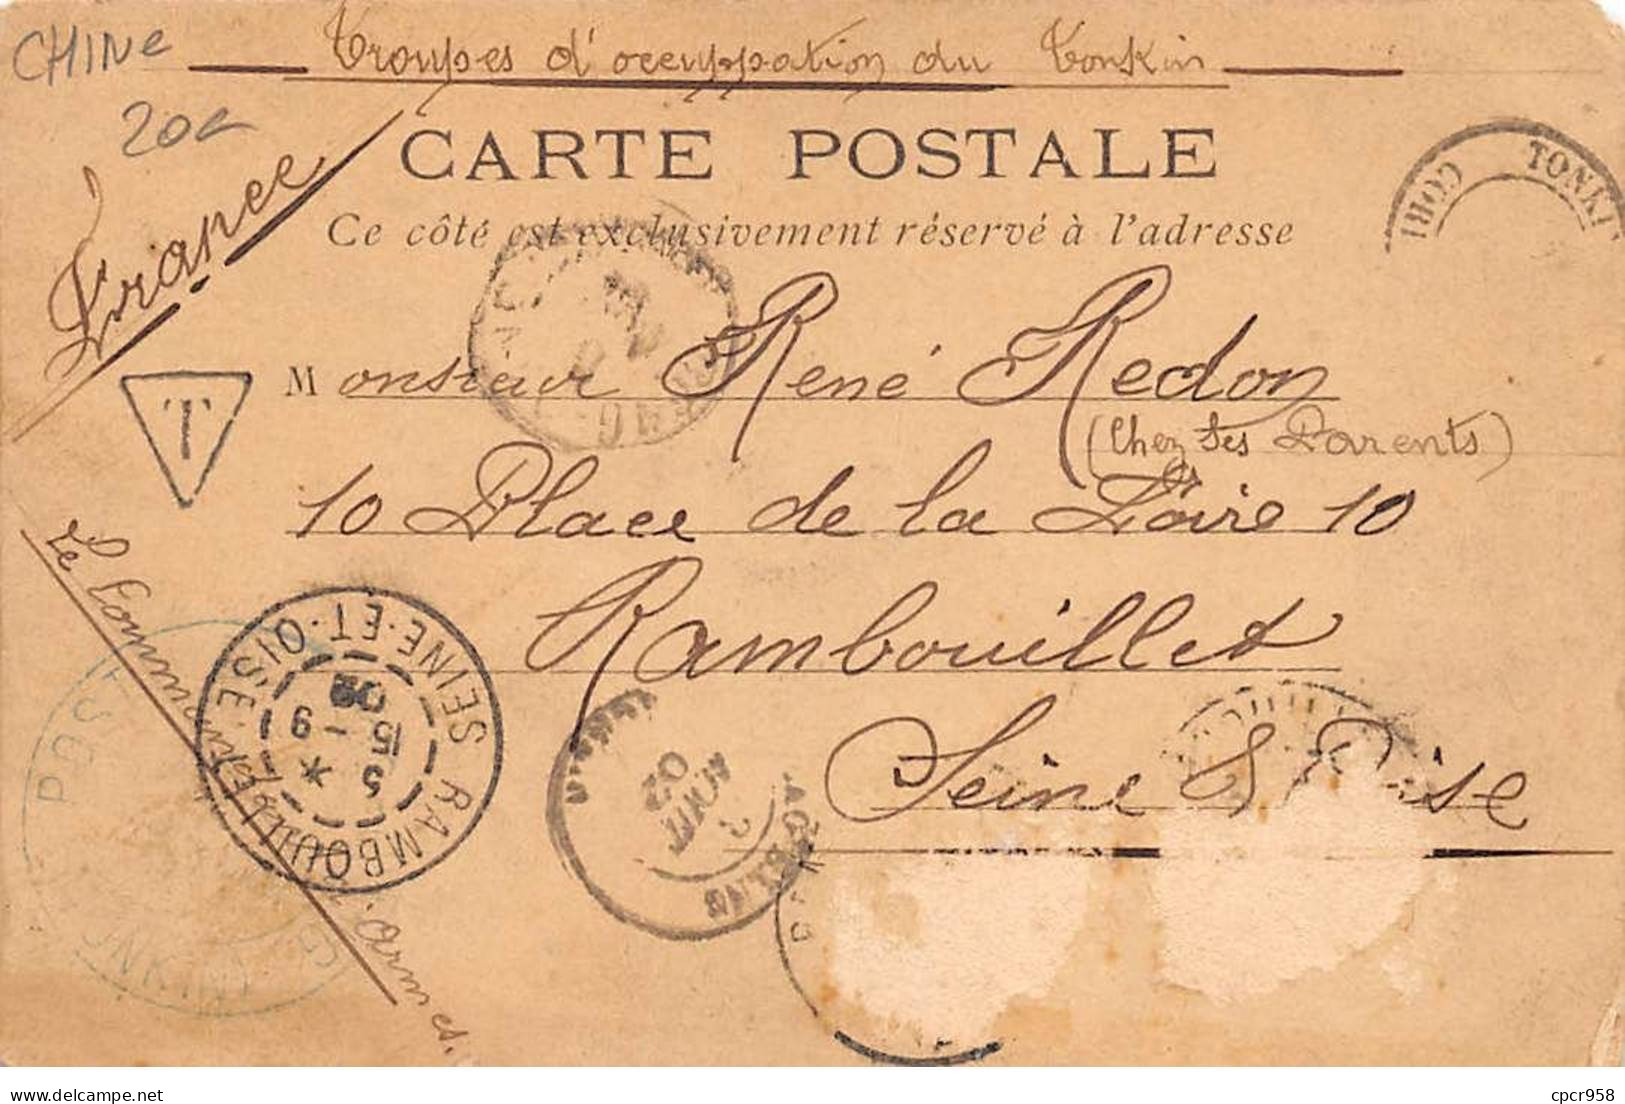 CHINE
20e
Troupes d'occuppation du Tonkin
CARTE POSTALE
Ce côté est exclusivement réservé à l'adresse
France
TONKI
CORR
T
Monsieur René Redon
(Chez Ses Parents)
10 Place de la Loire 10
Rambouillet
Seine & Oise
Le Commandt d'armes.
RAMBOUILLET
SEINE-ET-OISE
5
15 - 9
02
2
AOUT
02
POST
TONKIN
cpcr958